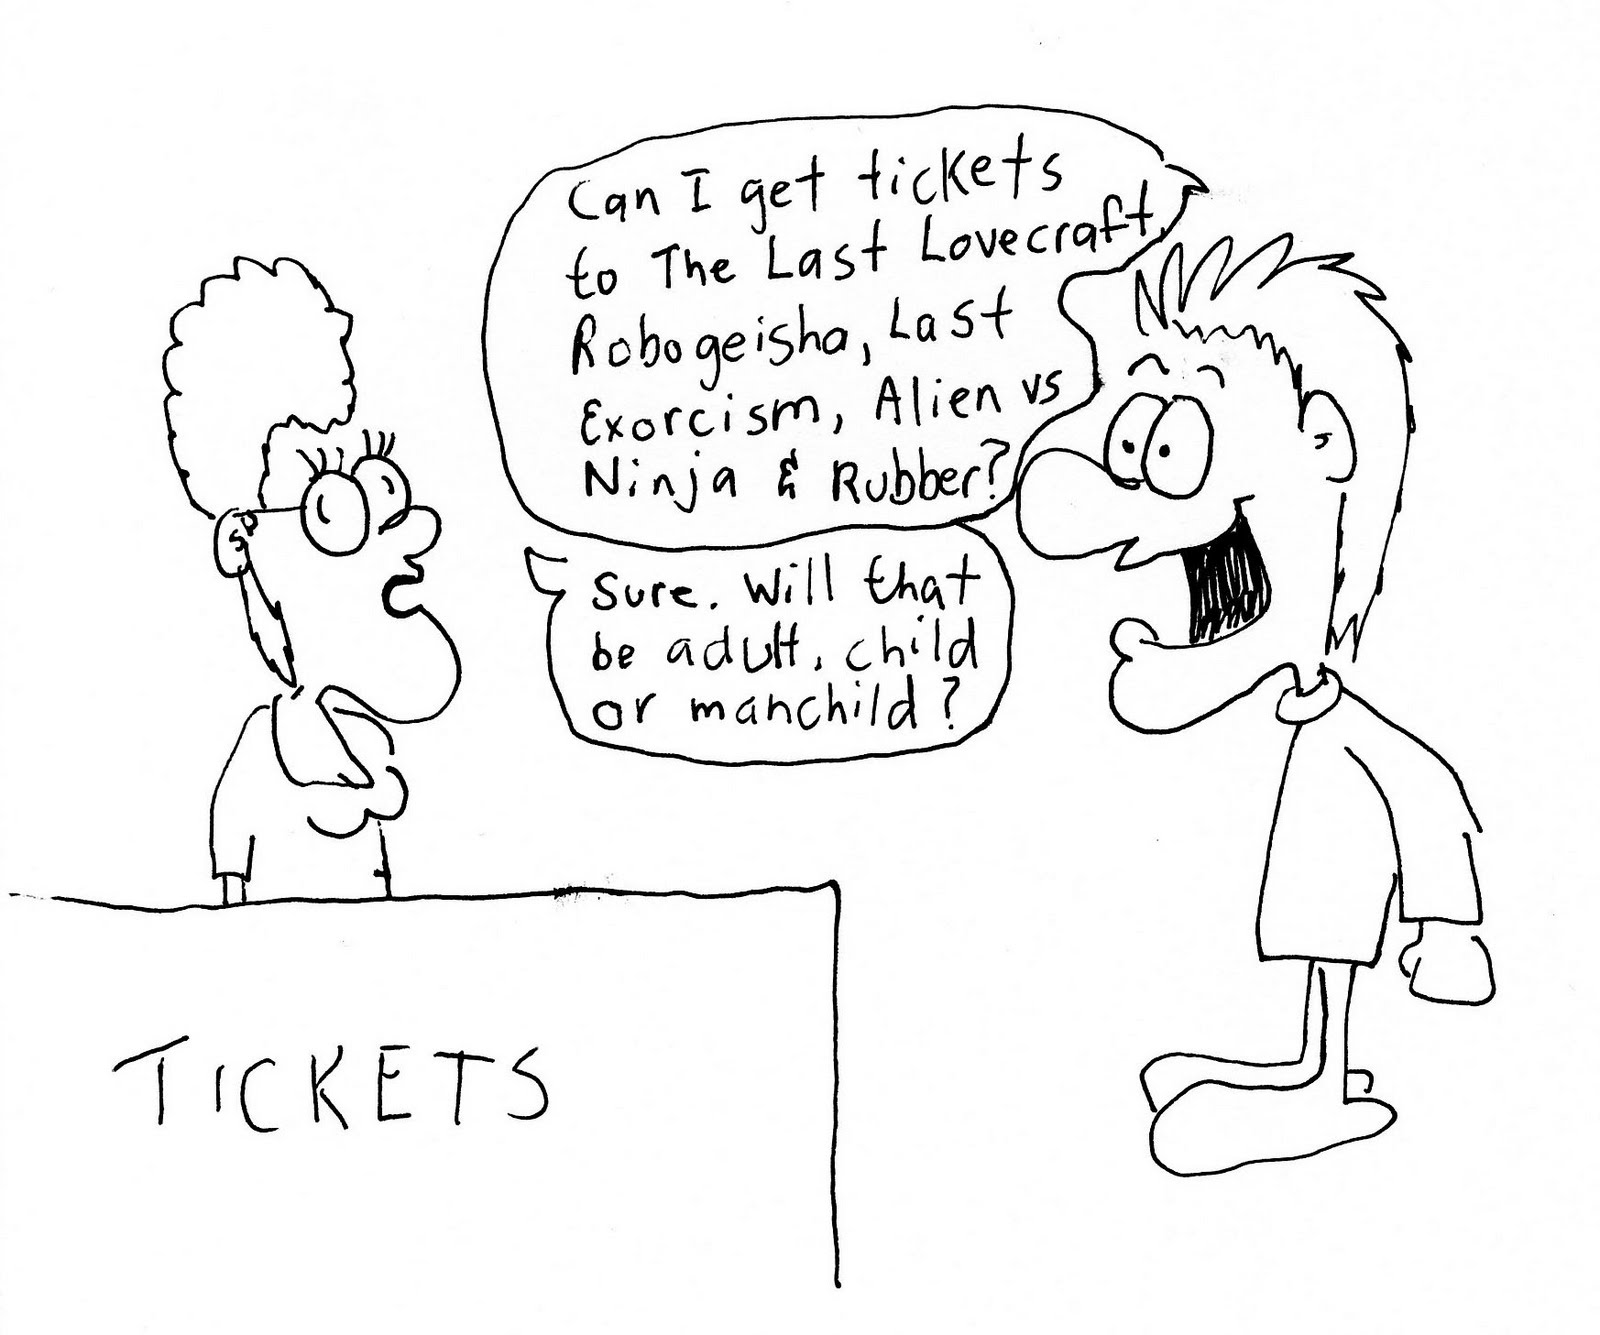 Can I get tickets
to The Last Lovecraft,
Robogeisha, Last
Exorcism, Alien vs
Ninja & Rubber?
Sure. Will that
be adult, child
or manchild?
TICKETS